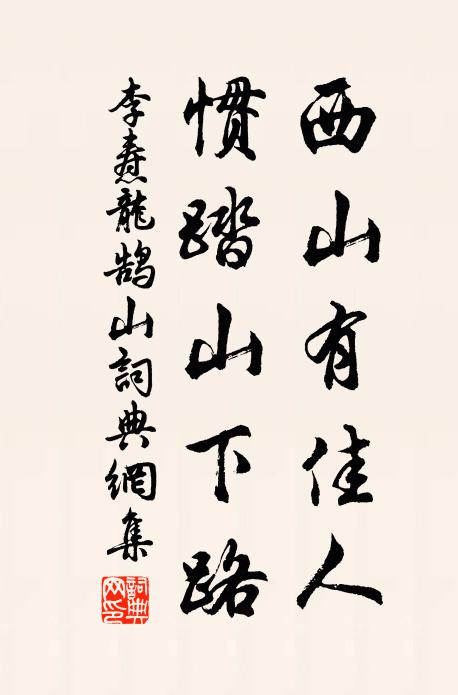 西山有佳人
慣踏山下路
李壽龍鵠山詞典網集
詞典網印